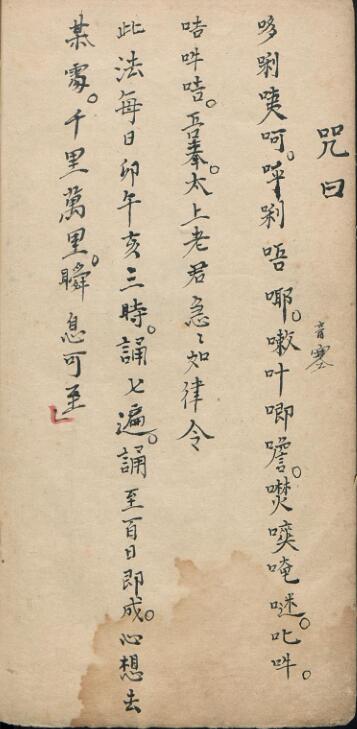 咒曰
哆唎㖿呵。呼唎唔㖿。嗽叶唧噡。噤㗫唵𠹌。叱吽。
音寒
咭吽咭。吾奉。太上老君急〻如律令
此法每日卯午亥三時。誦七遍。誦至百日即成。心想去
某處。千里萬里。瞬息可至